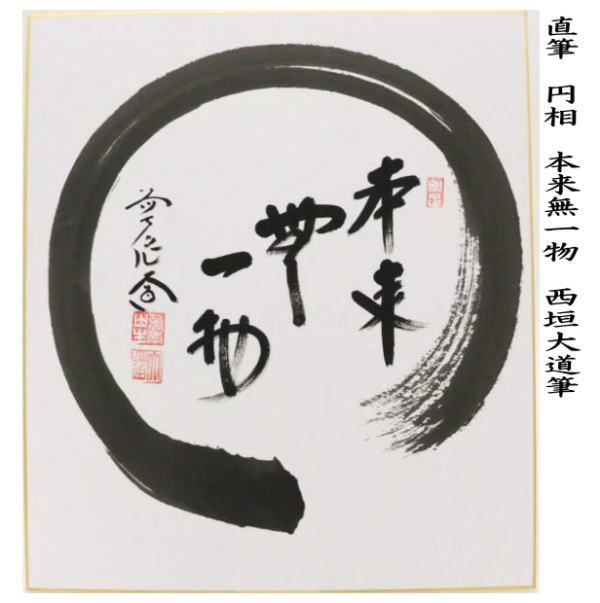 直筆　円相　本来無一物　西垣大道筆
本来
無
一物